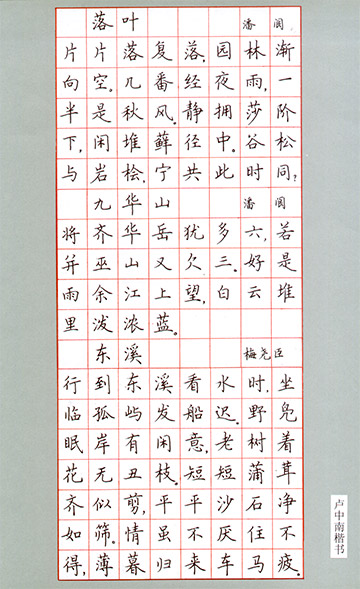 落叶 潘阆
片片落复落。园林渐
向空。几番经夜雨,一
半是秋风。静拥莎阶
下,闲堆藓径中。谷松
与岩桧。宁共此时同?
九华山 潘阆
将齐华岳犹多六,若
并巫山又欠三。好是
雨余江上望,白云堆
里泼浓蓝。
东溪 梅尧臣
行到东溪看水时,坐
临孤屿发船迟。野凫
眠岸有闲意,老树着
花无丑枝。短短蒲茸
齐似剪,平平沙石净
如筛。情虽不厌住不
得,薄暮归来车马疲。
卢中南楷书